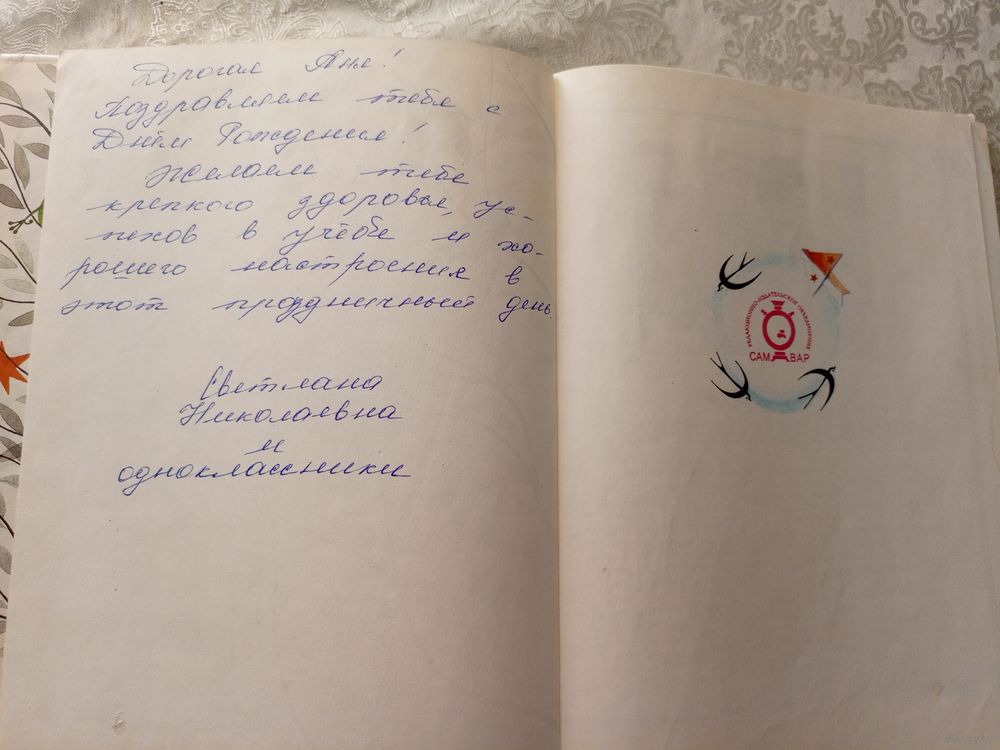 Дорогая Аня!
Поздравляем тебя с
Днём Рождения!
Желаем тебе
крепкого здоровья, ус-
пехов в учёбе и хо-
рошего настроения в
этот праздничный день.
Светлана
Николаевна
и
одноклассники
РЕДАКЦИОННО-ИЗДАТЕЛЬСКОЕ ОБЪЕДИНЕНИЕ
САМ ВАР